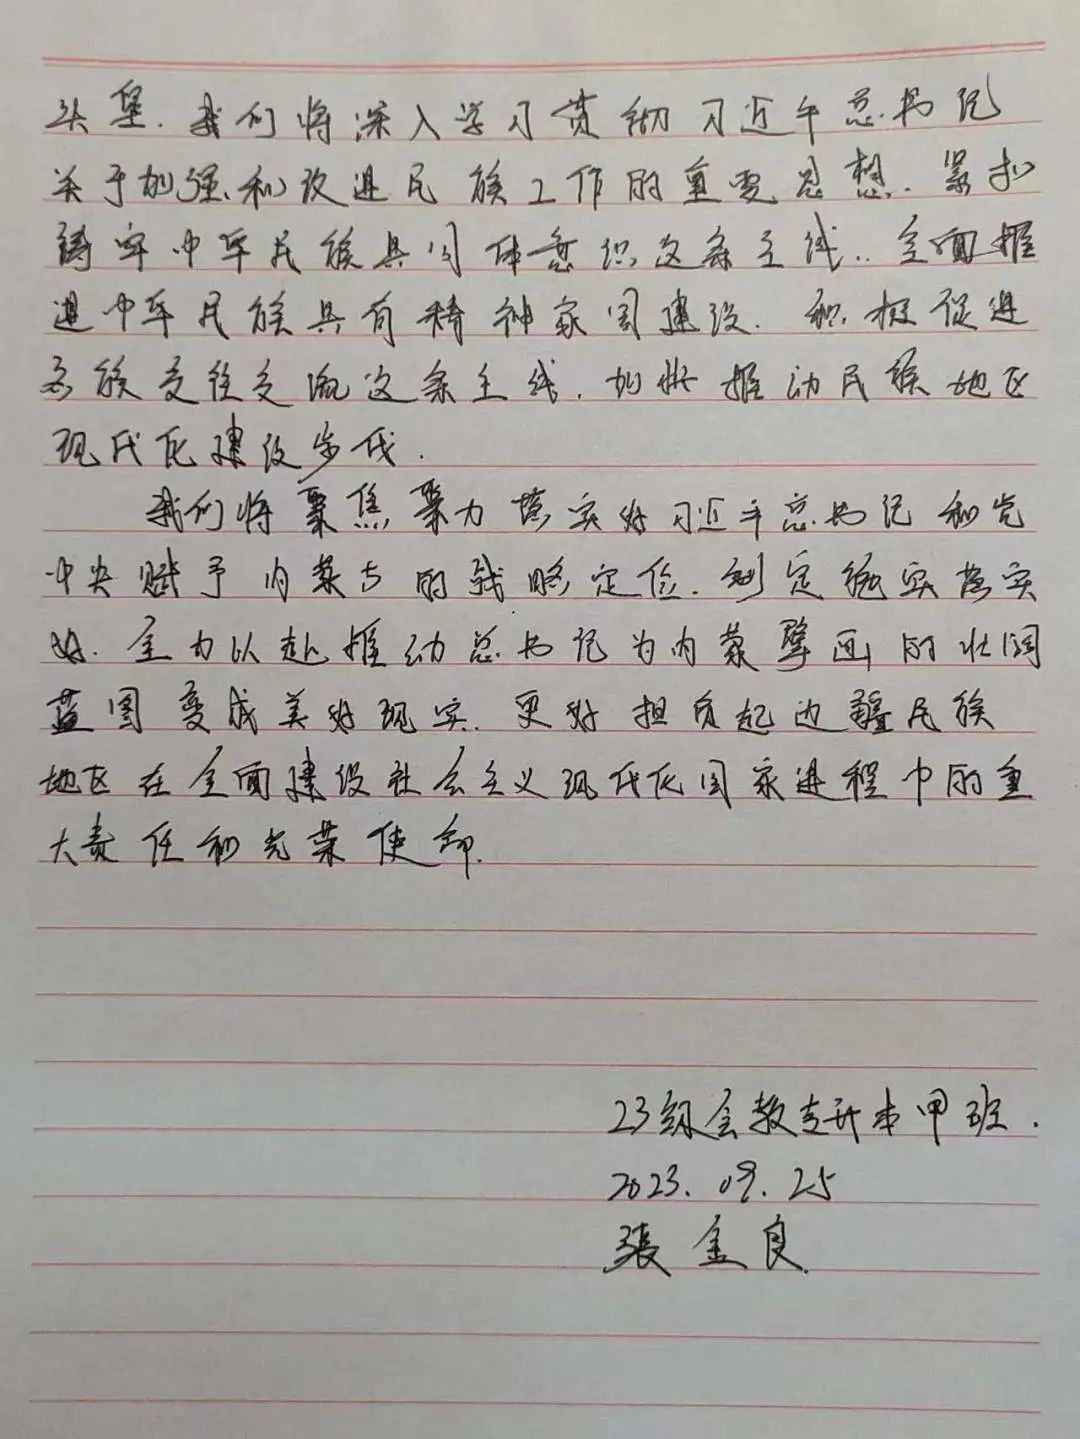 头堡.我们将深入学习贯彻习近平总书记
关于加强和改进民族工作的重要思想.紧扣
铸牢中华民族共同体意识这条主线..全面推
进中华民族共有精神家园建设.积极促进
各族交往交流这条主线.加快推动民族地区
现代化建设步伐.
我们将聚焦聚力落实好习近平总书记和党
中央赋予内蒙古的战略定位.制定抓实落实
好.全力以赴推动总书记为内蒙擘画的壮阔
蓝图变成美好现实.更好担负起边疆民族
地区在全面建设社会主义现代化国家进程中的重
大责任和光荣使命.
23级会教专升本甲班.
2023.09.25
張金良